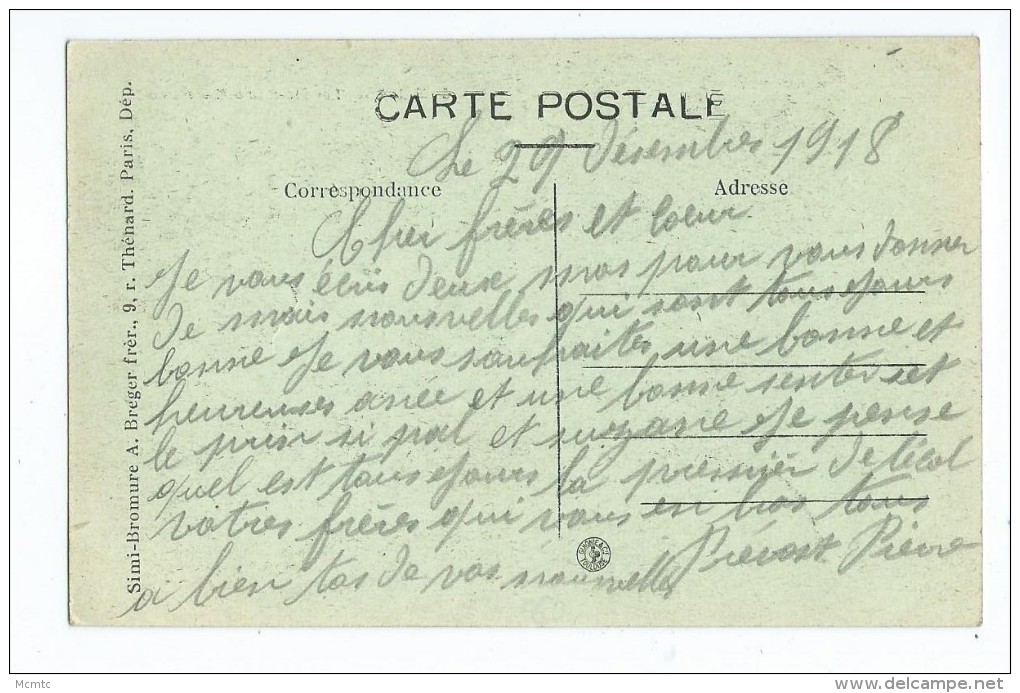 CARTE POSTALE
Le 29 Désembre 1918
Correspondance
Adresse
Cher frères et Cœur
Je vous écris deux mos pour vous donner
de mais nouvelles qui sont tousJours
bonne Je vous souhaites une bonne et
heureuses anée et une bonne senter et
le prin si pal et suzane Je pense
quel est tousJours la premsier de lécol
votres frères qui vous en bras tous
Prevost Pierre
a bien tos de vos nouvelles
Simi-Bromure A. Breger frèr., 9, r. Thénard. Paris. Dép.
Mcmtc
delcampe.net